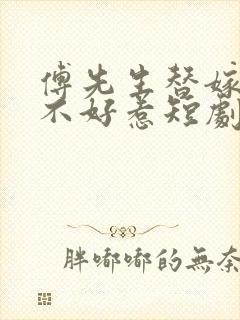 傅先生替嫁
不好惹短劇
胖嘟嘟的無奈